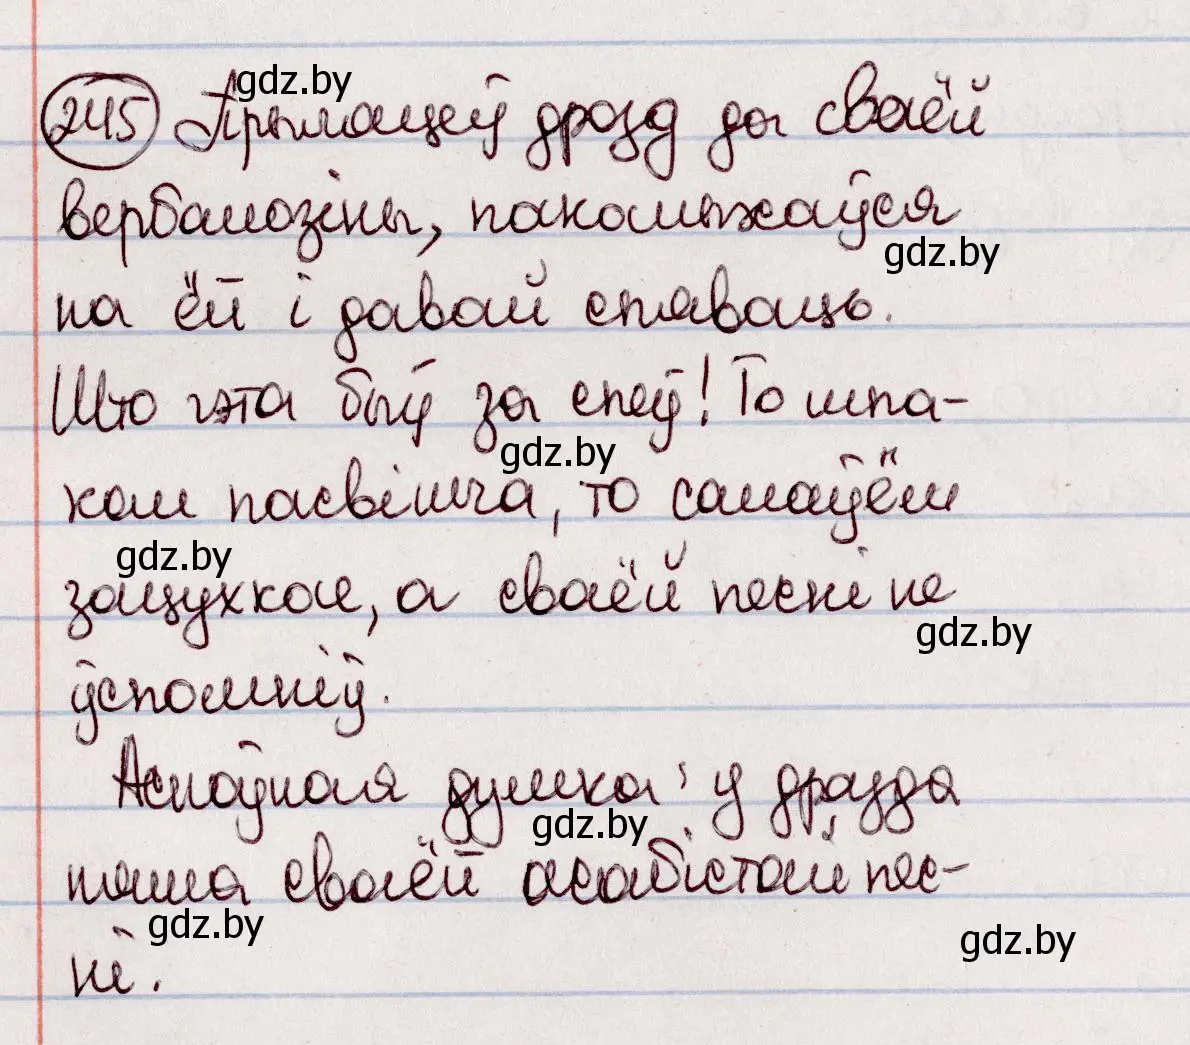 gdz.by
245 Прыляцеў дрозд да сваёй
вербалозіны, пакалыхаўся
gdz.by
на ёй і давай спяваць.
Што гэта быў за спеў! То шпа-
gdz.by
ком пасвішча, то салаўём
gdz.by
зацухкае, а сваёй песні не
gdz.by
ўспомніў.
Асноўная думка: у дразда
gdz.by
няма сваёй асабістай пес-
gdz.by
gdz.by
ні.